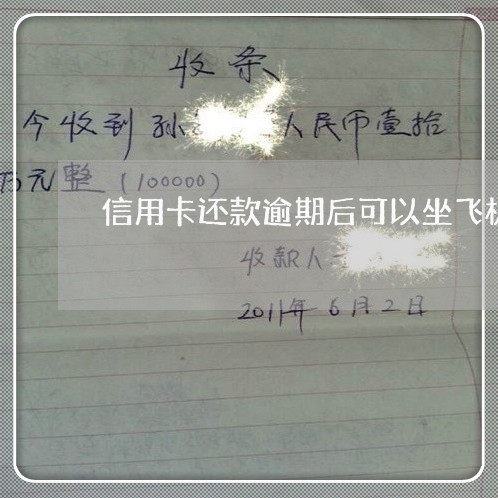 收条
今收到孙 人民币壹拾
万元整（100000）
信用卡还款逾期后可以坐飞机
收款人
2011年6月2日